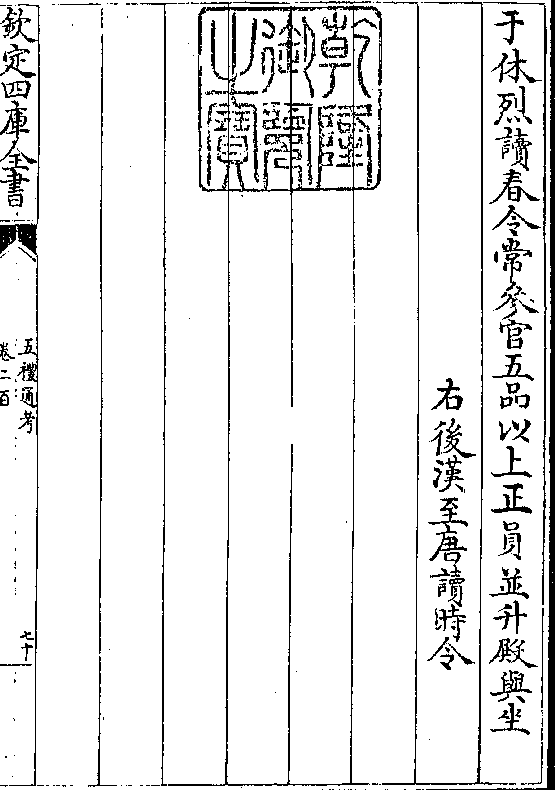 于休烈讀春令常參官五品以上正員並升殿與坐
右後漢至唐讀時令
乾隆御覽之寶
欽定四庫全書
五禮通考
卷二百
七十